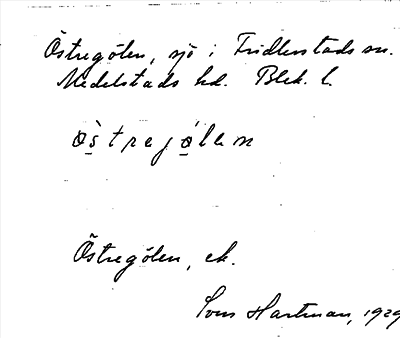 Östregölen, sjö i Fridlevstads sn.
Medelstads hd. Blek. l.
ø̀stregø̀lən
Östregölen, ek.
Sven Hartman, 1929